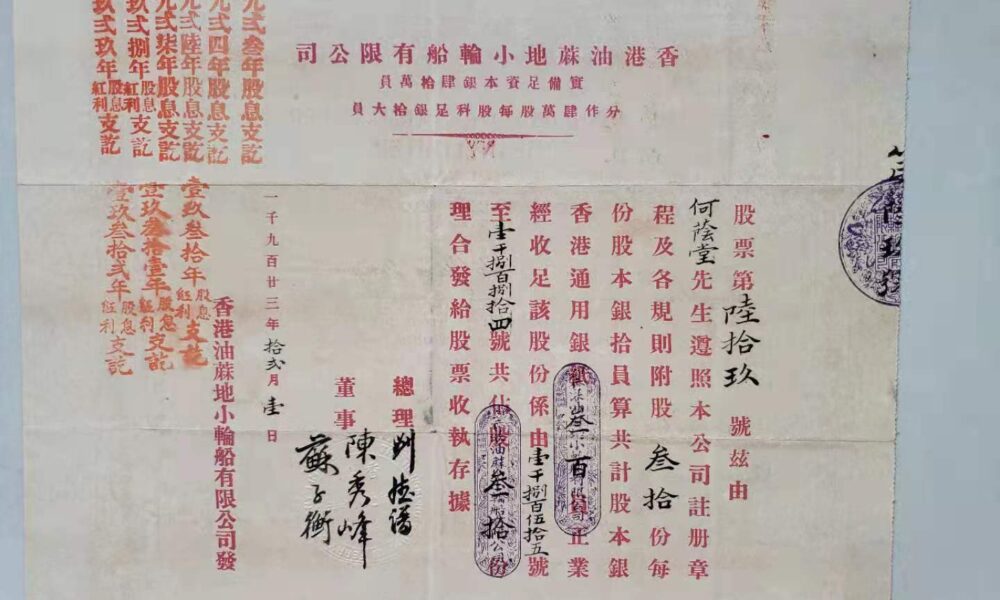 香港油蔴地小輪船有限公司
實備足資本銀肆拾萬員
分作肆萬股每股科足銀拾大員
股票第陸拾玖號茲由
何蔭堂先生遵照本公司註冊章
程及各規則附股叁拾份每
份股本銀拾員算共計股本銀
香港通用銀紙叁百員正業
經收足該股份係由壹千捌百伍拾五號
至壹千捌百捌拾四號共佔股叁拾份
理合發給股票收執存據
總理
董事 陳秀峰
蘇子衡
一千九百廿三年拾弍月壹日
香港油蔴地小輪船有限公司發
弍叁年股息支訖
弍四年股息支訖
弍陸年股息支訖
弍柒年股息支訖
弍捌年股息紅利支訖
玖弍玖年股息紅利支訖
壹玖叁拾年股息紅利支訖
壹玖叁拾壹年股息紅利支訖
壹玖叁拾弍年股息紅利支訖